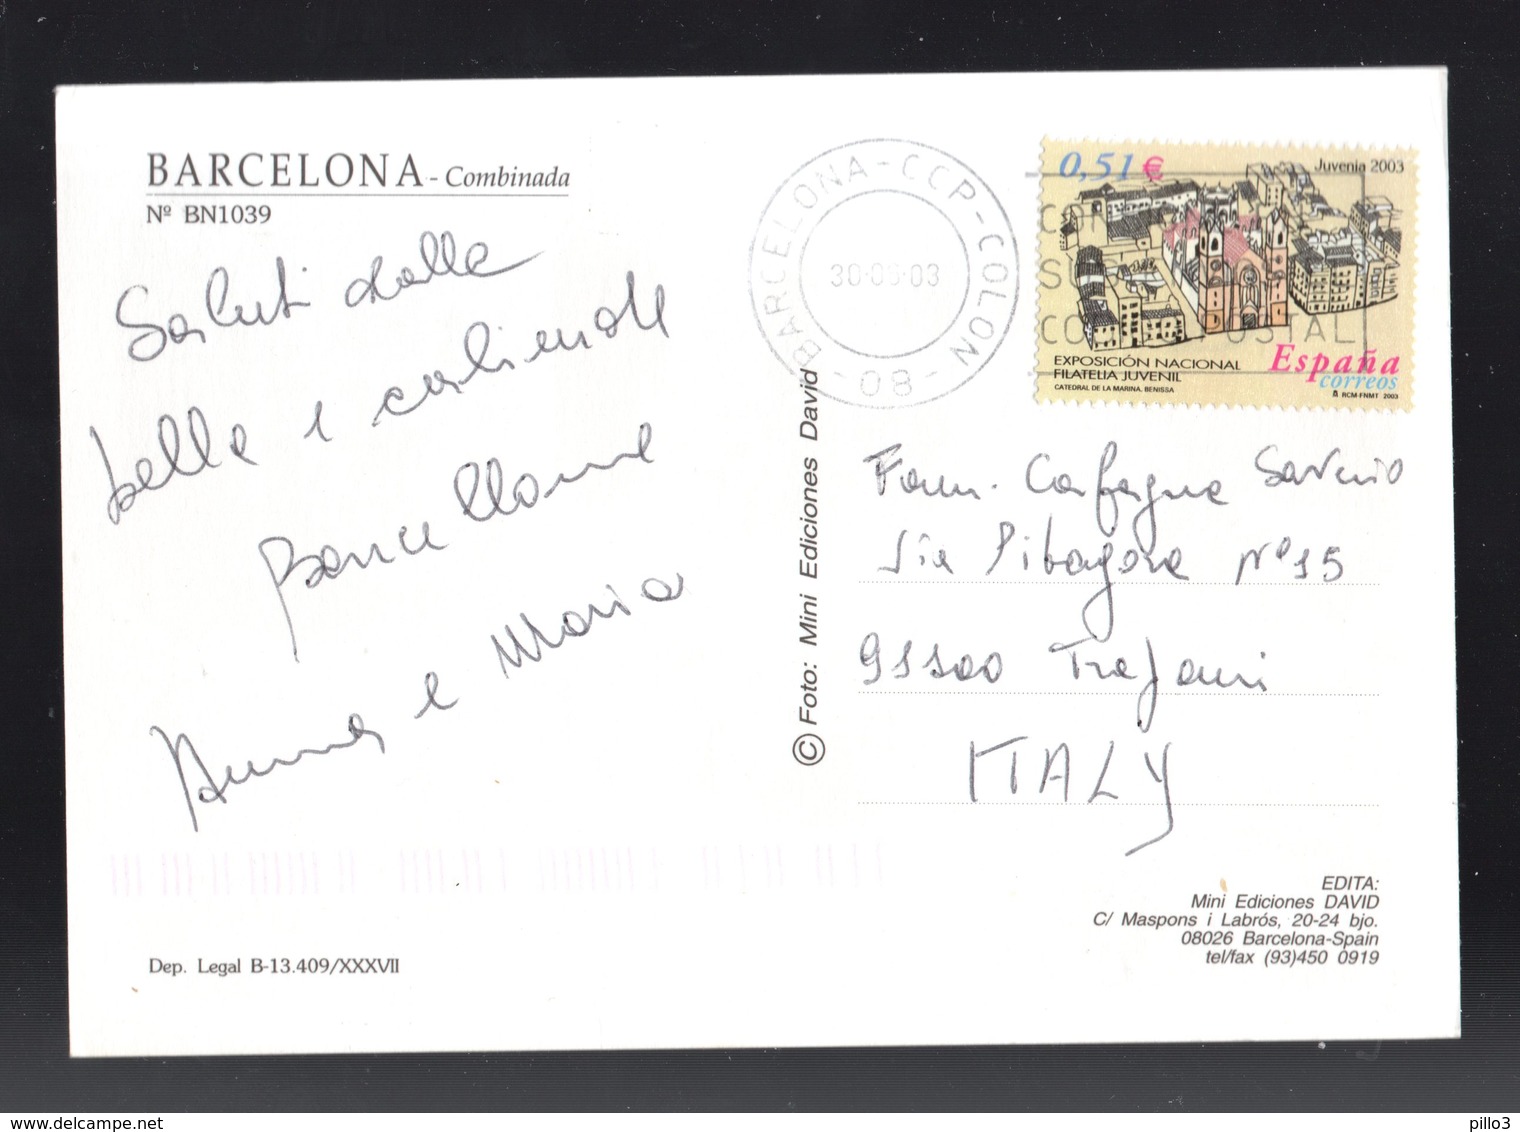 BARCELONA - Combinada
Nº BN1039
Saluti dalla
bella e
Barcellona
Anna e Maria
BARCELONA-CCP-COLON
-08-
30·0 ·03
0,51 €
Juvenia 2003
EXPOSICIÓN NACIONAL
FILATELIA JUVENIL
CATEDRAL DE LA MARINA. BENISSA
España
correos
RCM-FNMT 2003
POSTAL
© Foto: Mini Ediciones David
Fam. Carfagna Saverio
Via Pitagora Nº 15
91100 Trapani
ITALY
EDITA:
Mini Ediciones DAVID
C/ Maspons i Labrós, 20-24 bjo.
08026 Barcelona-Spain
tel/fax (93)450 0919
Dep. Legal B-13.409/XXXVII
pillo3